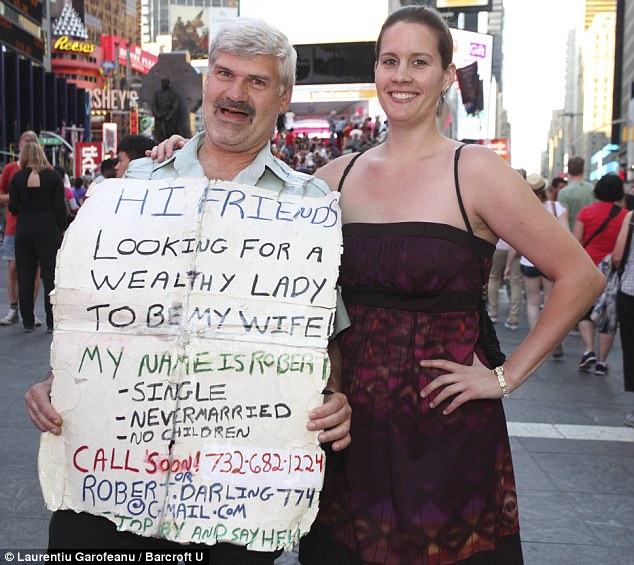 Reese's
HERSHEY'S
HI FRIENDS
LOOKING FOR A
WEALTHY LADY
TO BE MY WIFE!
MY NAME IS ROBERT
-SINGLE
-NEVER MARRIED
-NO CHILDREN
CALL SOON! 732-682-1224
OR
ROBERT.DARLING774
@GMAIL.COM
-STOP BY AND SAY HELLO
© Laurentiu Garofeanu / Barcroft U